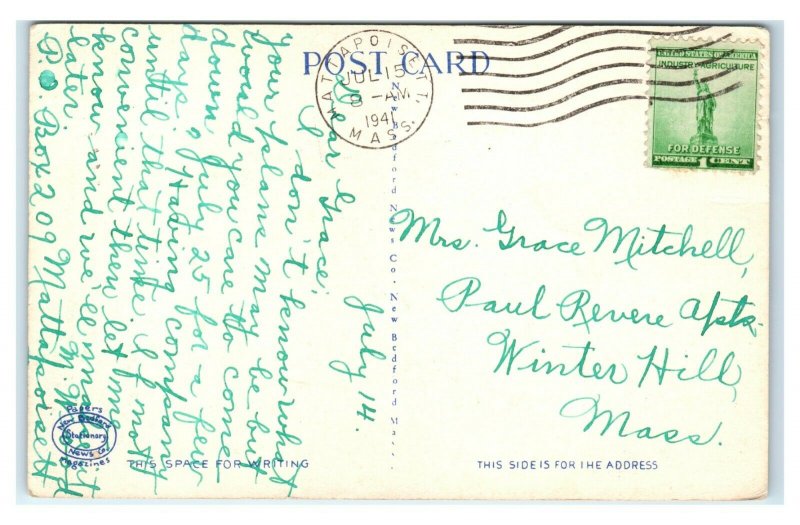 POST CARD
MATTAPOISETT,
JUL 15
8 - AM
1941
MASS.
UNITED STATES OF AMERICA
INDUSTRY-AGRICULTURE
FOR DEFENSE
POSTAGE 1 CENT
July 14.
Dear Grace,
I don't know what
your plans may be but
would you care to come
down July 25 for a few
days, Having company
until that time. If not
convenient then, let me
know and we'll make it
later.
P.O Box 209 Mattapoisett
New Bedford News Co., New Bedford Mass.
Mrs. Grace Mitchell,
Paul Revere Apts.
Winter Hill,
Mass.
Papers
New Bedford
Stationary
News Co.
Magazines
THIS SPACE FOR WRITING
THIS SIDE IS FOR THE ADDRESS